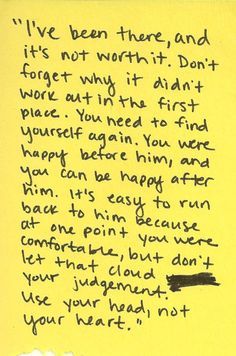 "I've been there, and
it's not worth it. Don't
forget why it didn't
work out in the first
place. You need to find
yourself again. You were
happy before him, and
you can be happy after
him. It's easy to run
back to him because
at one point you were
comfortable, but don't
let that cloud
your judgement.
Use your head, not
your heart."